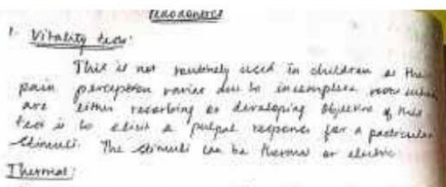 Pedodontics
1. Vitality tests:
This is not routinely used in children as the
pain perception varies due to incomplete roots which
are either resorbing or developing Objective of this
test is to elicit a pulpal response for a particular
Stimuli. The stimuli can be thermal or electric
Thermal: